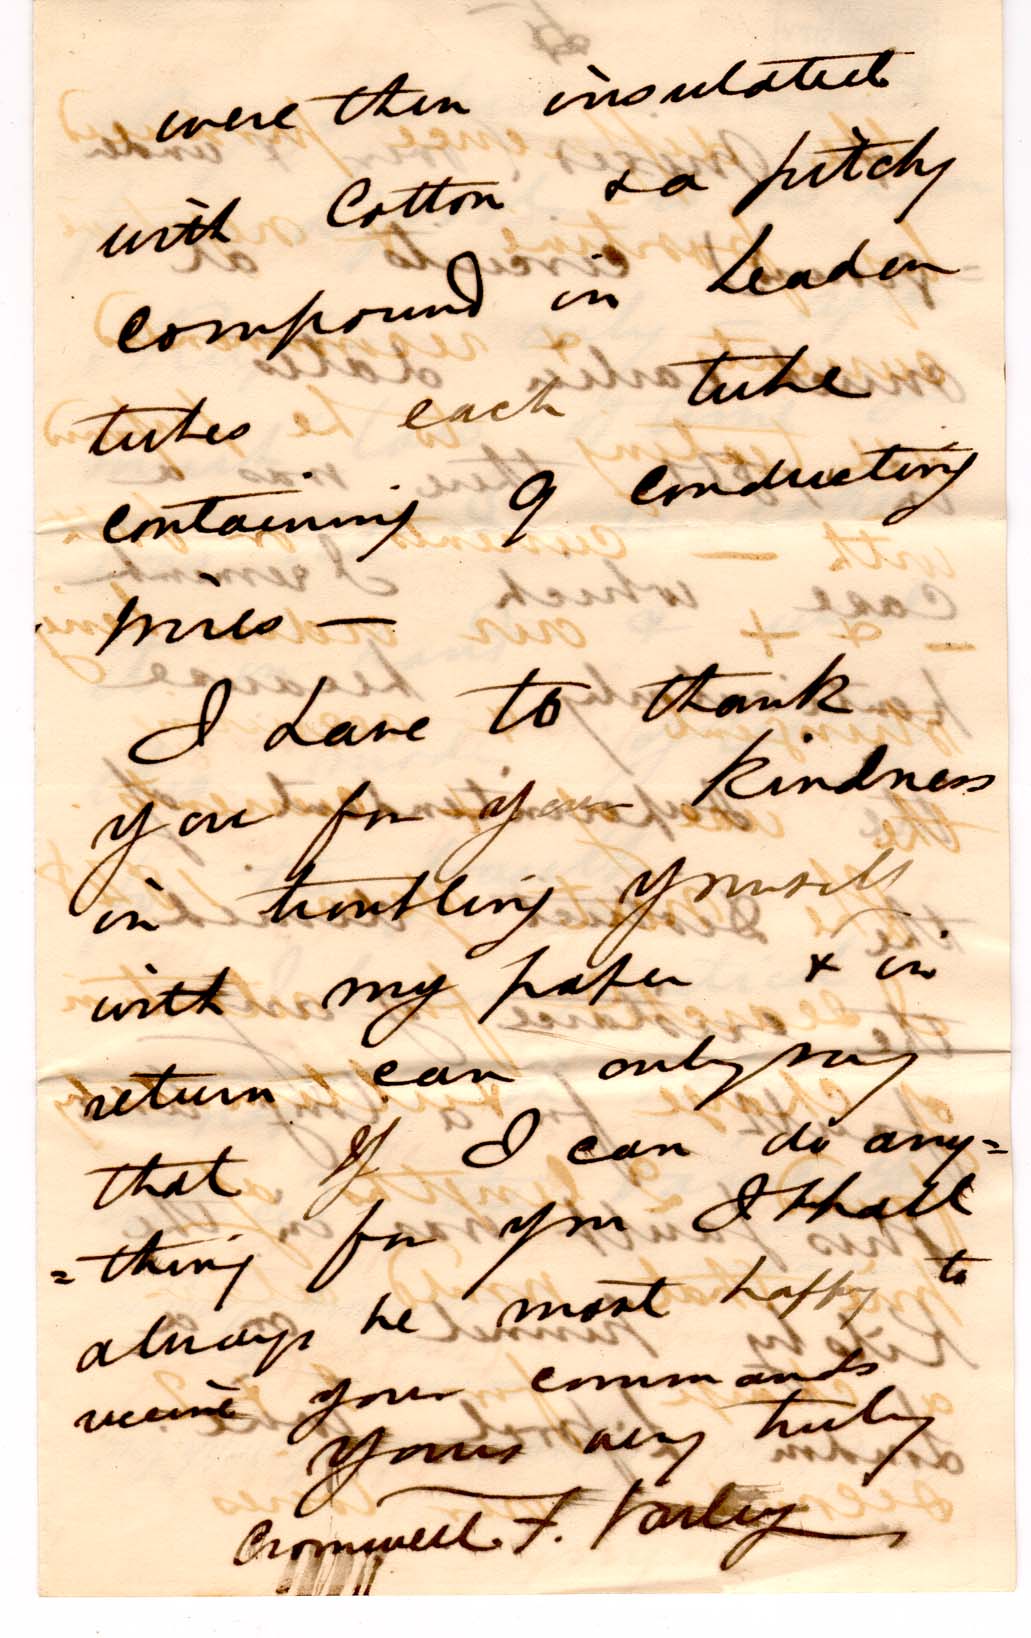 were then insulated
with Cotton & a pitchy
compound in Leaden
tubes each tube
containing 9 conducting
wires —
I have to thank
you for your kindness
in troubling yourself
with my paper & in
return can only say
that If I can do any=
=thing for you I shall
always be most happy to
receive your commands
Yours very truly
Cromwell F. Varley